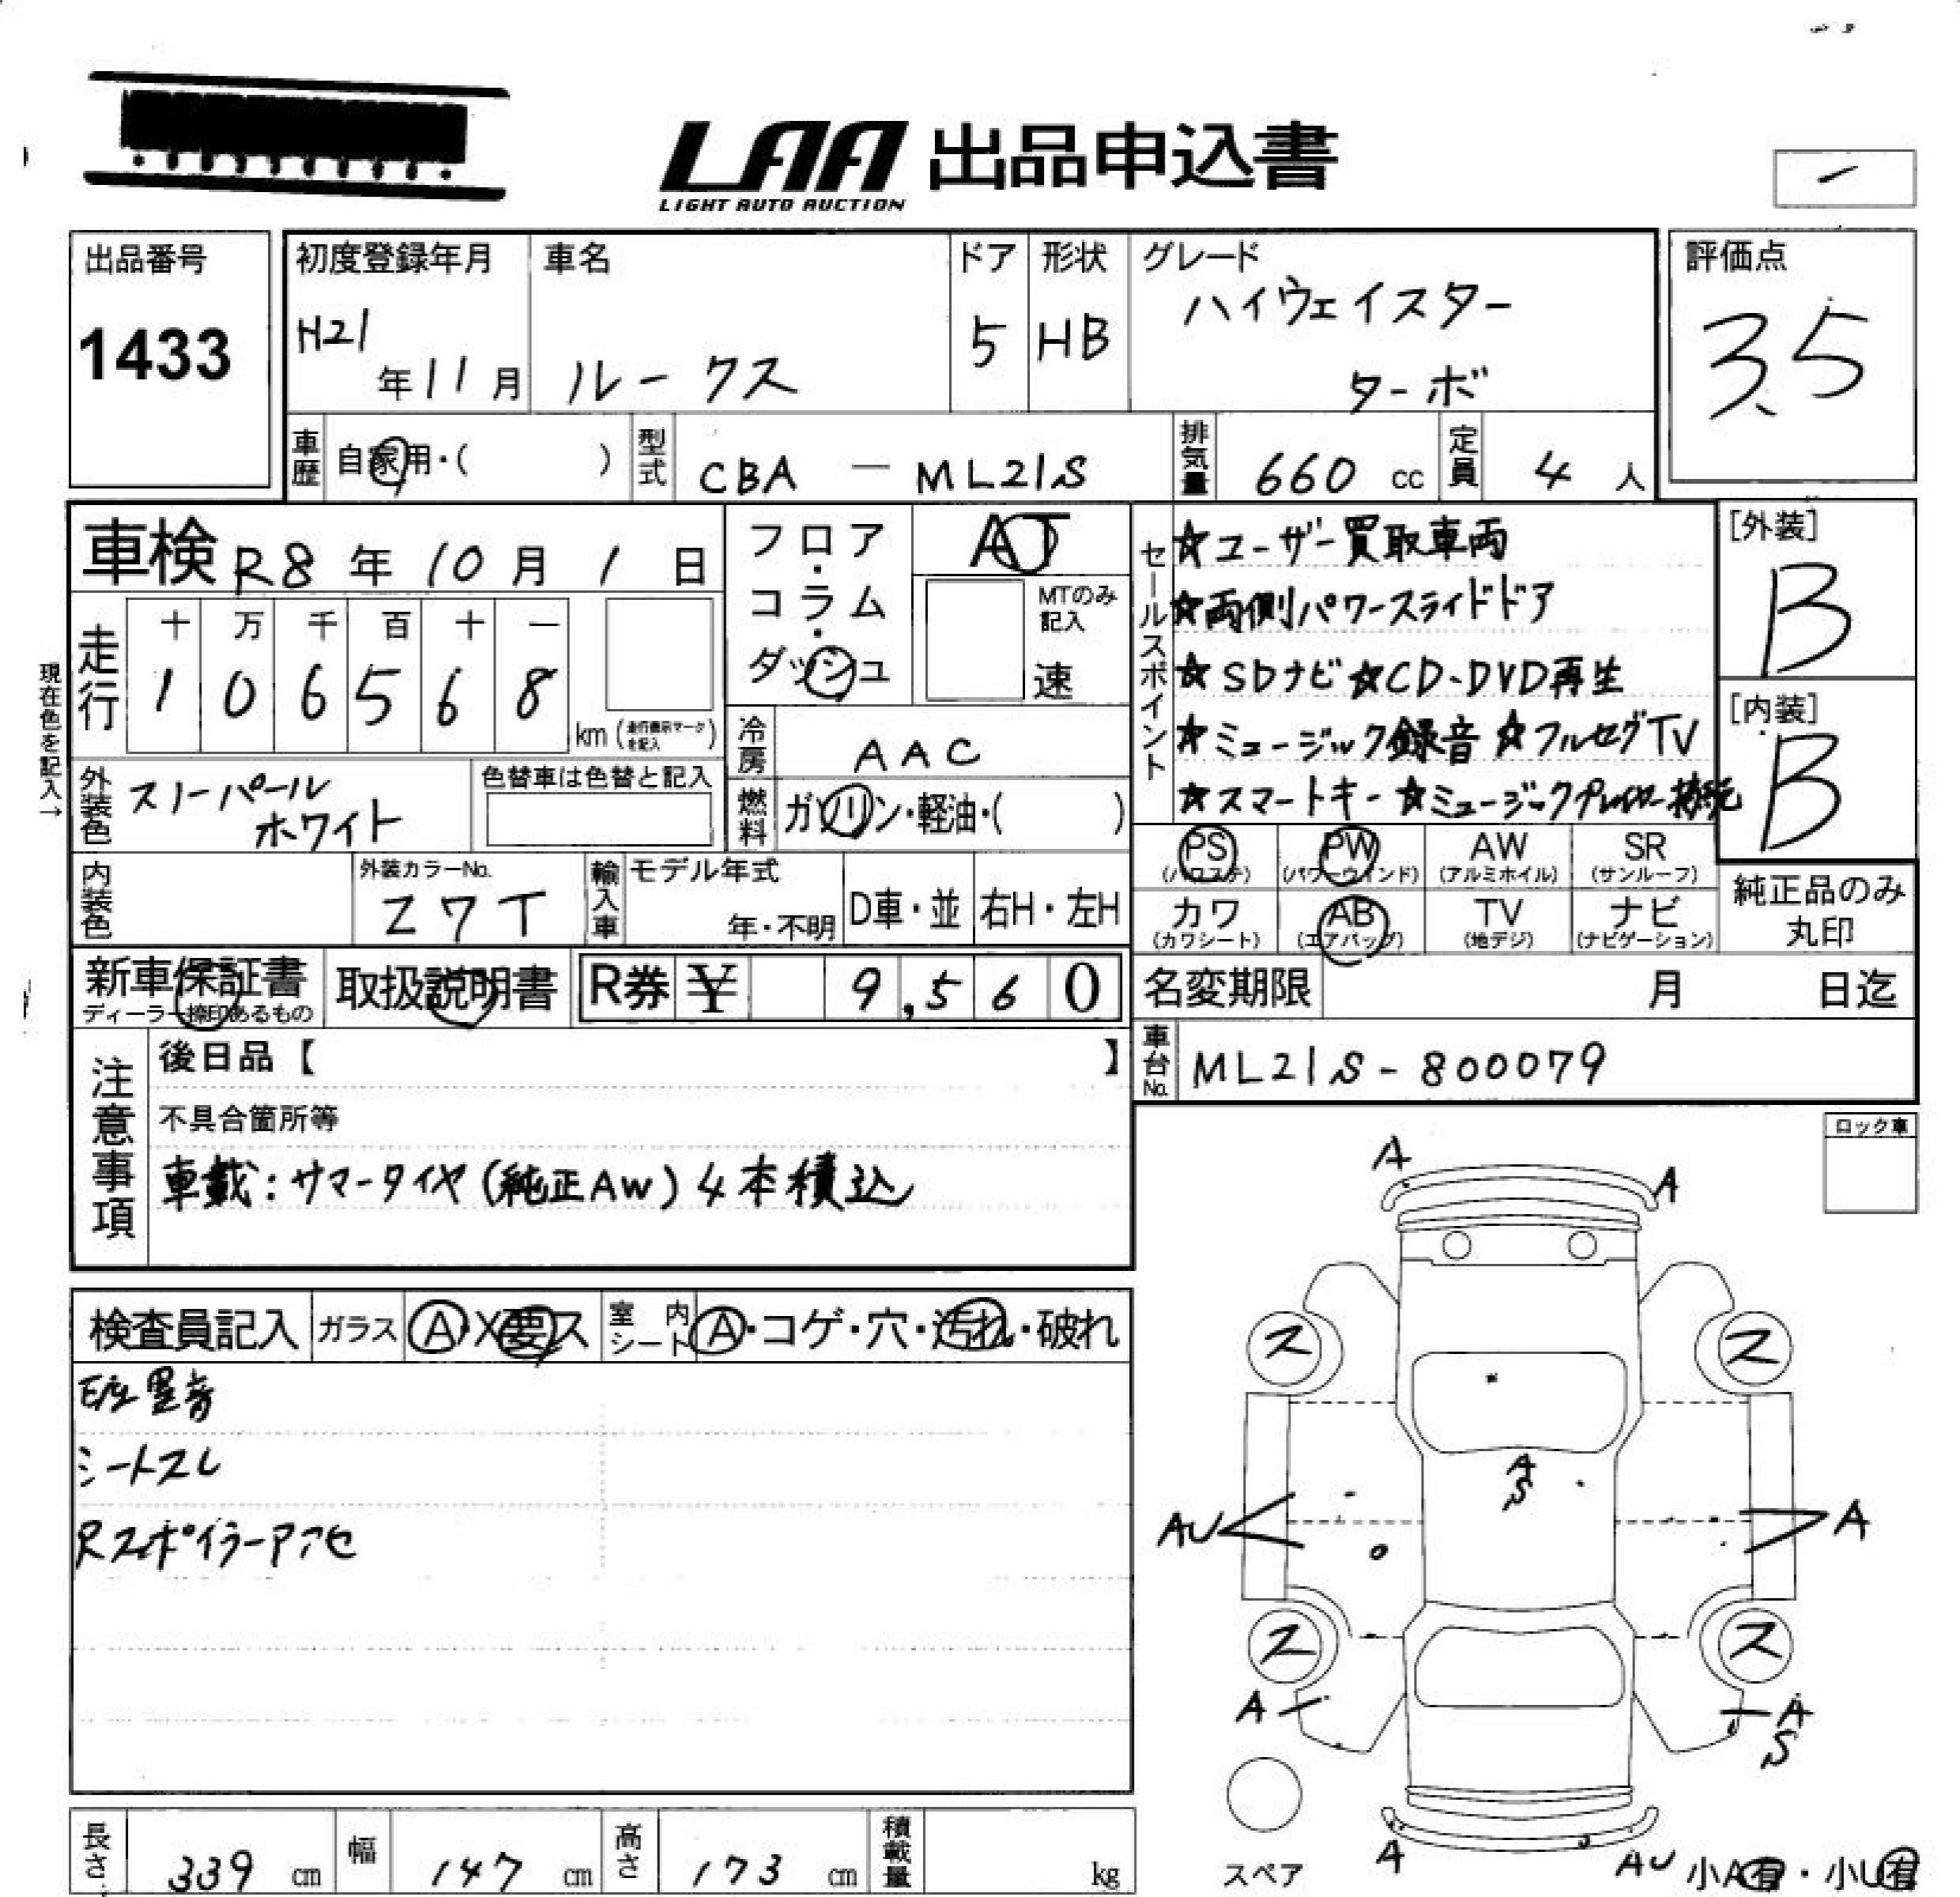 LAA 出品申込書
LIGHT AUTO AUCTION
出品番号
1433
初度登録年月
H21
年11月
車名
ルークス
ドア
5
形状
HB
グレード
ハイウェイスター
ターボ
評価点
3.5
車歴
自家用・( )
型式
CBA － ML21S
排気量
660 cc
定員
4 人
車検 R8 年 10 月 1 日
走行
十 万 千 百 十 一
1 0 6 5 6 8
km (走行表示マークを記入)
現在色を記入→
フロア・コラム・ダッシュ
AT
MTのみ
記入
速
冷房
AAC
燃料
ガソリン・軽油・( )
外装色
スノーパール
ホワイト
色替車は色替と記入
内装色
外装カラーNo.
Z7T
輸入車
モデル年式
年・不明
D車・並
右H・左H
セールスポイント
☆ユーザー買取車両
☆両側パワースライドドア
☆SDナビ☆CD・DVD再生
☆ミュージック録音☆フルセグTV
☆スマートキー☆ミュージックプレイヤー接続
[外装]
B
[内装]
B
PS
(パワステ)
PW
(パワーウインド)
AW
(アルミホイル)
SR
(サンルーフ)
カワ
(カワシート)
AB
(エアバッグ)
TV
(地デジ)
ナビ
(ナビゲーション)
純正品のみ
丸印
新車保証書
ディーラー捺印あるもの
取扱説明書
R券 ¥ 9,560
名変期限
月 日迄
車台No.
ML21S-800079
注意事項
後日品【 】
不具合箇所等
車載:サマータイヤ(純正AW)4本積込
ロック車
検査員記入
ガラス
A・X要ス
室内
シート
A・コゲ・穴・汚れ・破れ
シートスレ
Rスポイラーアフセ
A
A
ス
ス
A
S
AU
A
ス
ス
A
A
S
A
AU
スペア
小A有・小U有
長さ
339 cm
幅
147 cm
高さ
173 cm
積載量
kg